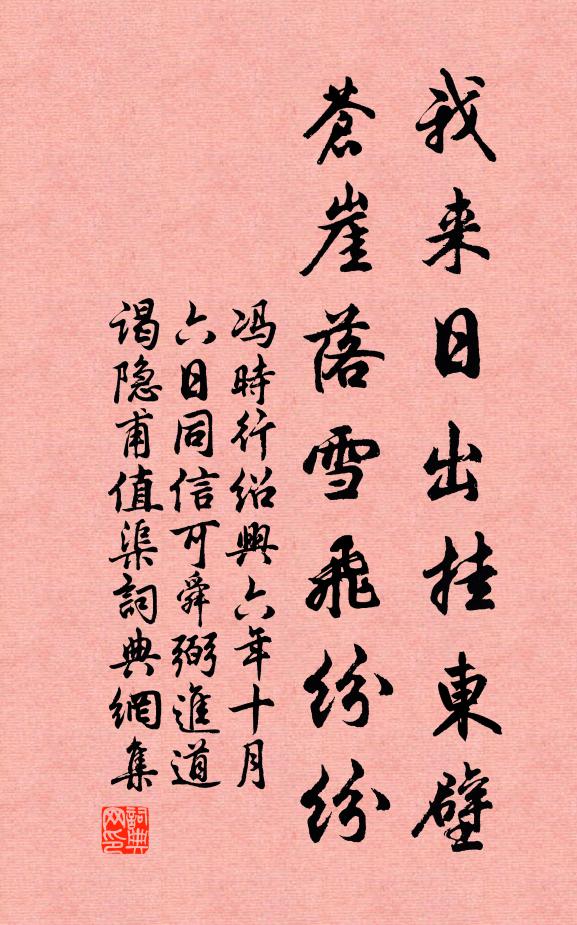 我来日出挂東壁
蒼崖落雪飛紛紛
冯時行紹興六年十月
六日同信可舜弼進道
谒隐甫值渠詞典網集
詞典
网印